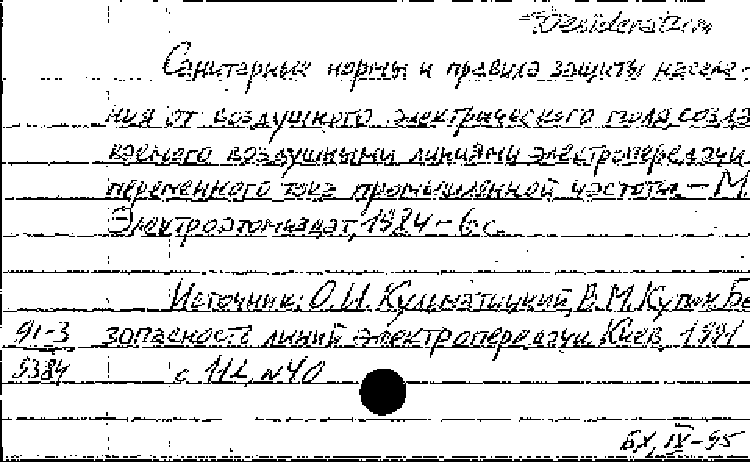 Desideratum
Санитарные нормы и правила защиты населе-
ния от воздушного электрического поля, созда
ваемого воздушными линиями электропередачи
переменного тока промышленной частоты. – М.
Энергоатомиздат, 1984 – 6 с.
Источник: О.И. В.М. Купин Бе
91-3 зопасность линий электропередачи Киев, 1991
5384 с. 112, №40
БХ, IX-95